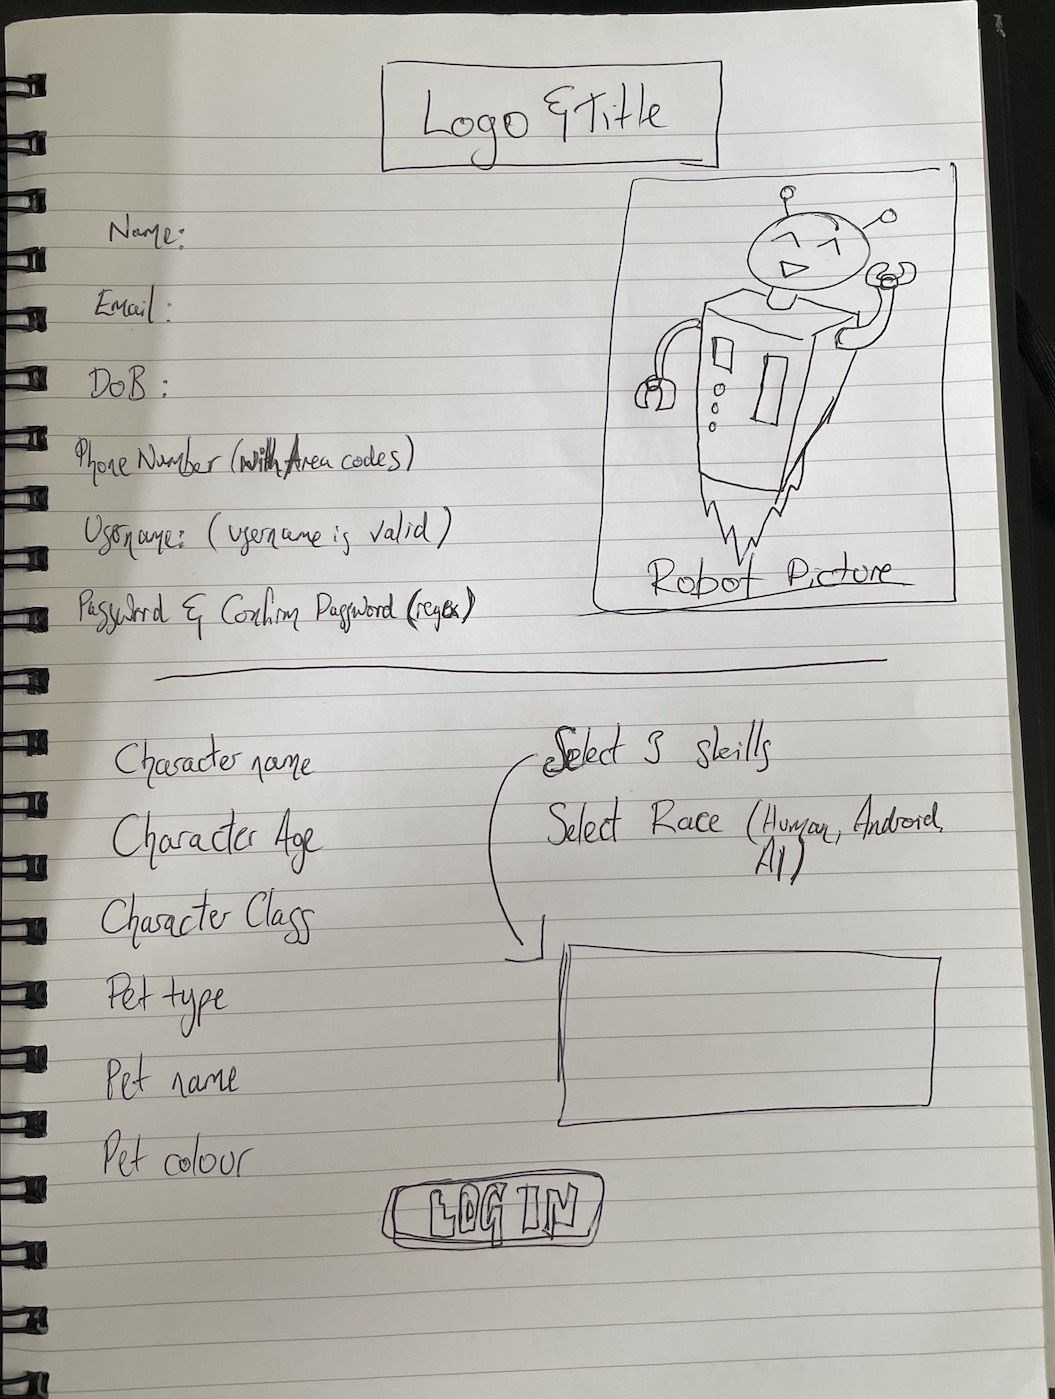 Logo & Title
Name:
Email:
DoB:
Phone Number (with Area codes)
Username: (username is valid)
Password & Confirm Password (regex)
Robot Picture
Character name
Character Age
Character Class
Pet type
Pet name
Pet colour
Select 3 skills
Select Race (Human, Android,
AI)
LOG IN